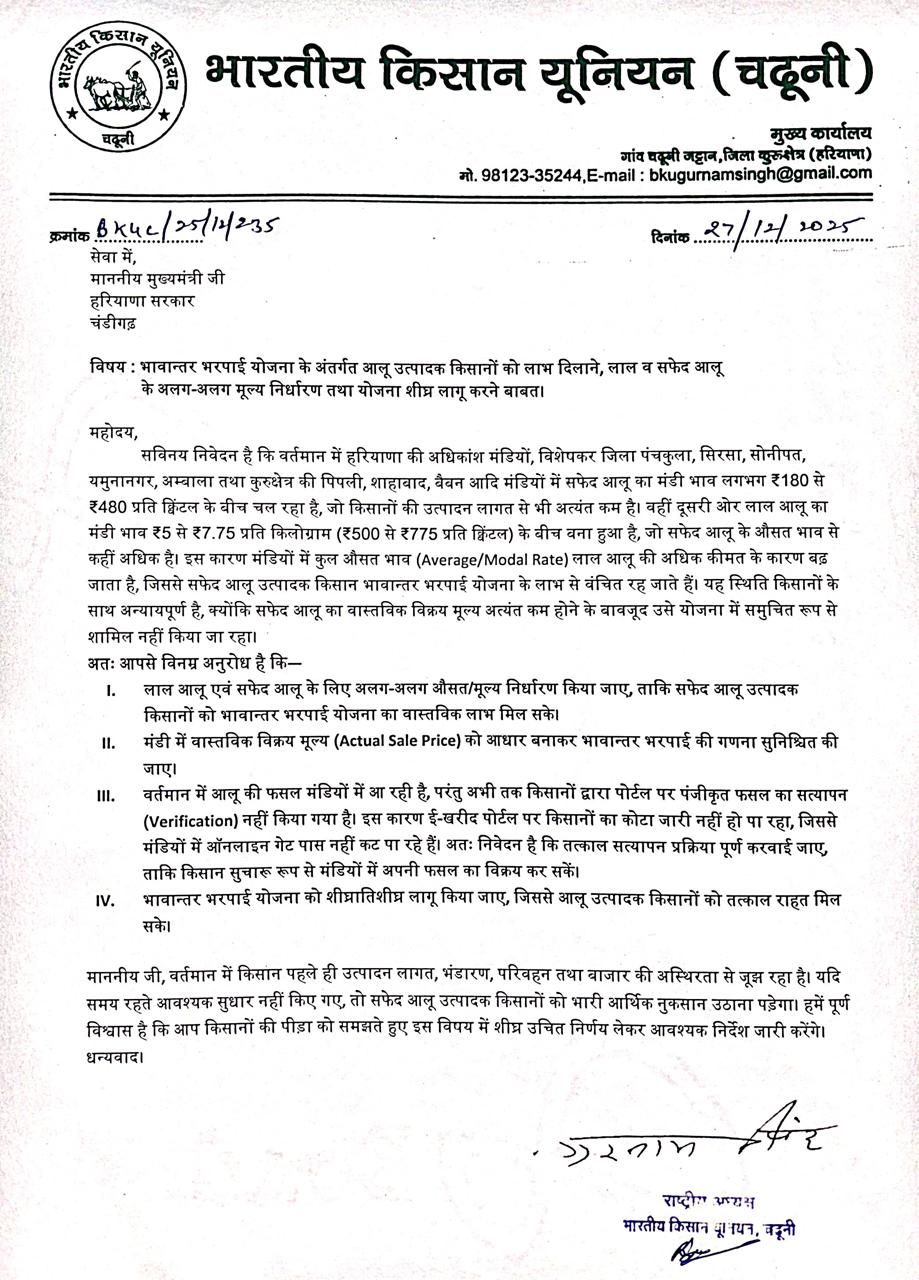 भारतीय किसान यूनियन
चढूनी
भारतीय किसान यूनियन (चढूनी)
मुख्य कार्यालय
गांव चढूनी जट्टान,जिला कुरुक्षेत्र (हरियाणा)
मो. 98123-35244,E-mail : bkugurnamsingh@gmail.com
क्रमांक BKUC/25/12/235
दिनांक 27/12/2025
सेवा में,
माननीय मुख्यमंत्री जी
हरियाणा सरकार
चंडीगढ़
विषय : भावान्तर भरपाई योजना के अंतर्गत आलू उत्पादक किसानों को लाभ दिलाने, लाल व सफेद आलू
के अलग-अलग मूल्य निर्धारण तथा योजना शीघ्र लागू करने बाबत।
महोदय,
सविनय निवेदन है कि वर्तमान में हरियाणा की अधिकांश मंडियों, विशेषकर जिला पंचकुला, सिरसा, सोनीपत,
यमुनानगर, अम्बाला तथा कुरुक्षेत्र की पिपली, शाहाबाद, बैबन आदि मंडियों में सफेद आलू का मंडी भाव लगभग ₹180 से
₹480 प्रति क्विंटल के बीच चल रहा है, जो किसानों की उत्पादन लागत से भी अत्यंत कम है। वहीं दूसरी ओर लाल आलू का
मंडी भाव ₹5 से ₹7.75 प्रति किलोग्राम (₹500 से ₹775 प्रति क्विंटल) के बीच बना हुआ है, जो सफेद आलू के औसत भाव से
कहीं अधिक है। इस कारण मंडियों में कुल औसत भाव (Average/Modal Rate) लाल आलू की अधिक कीमत के कारण बढ़
जाता है, जिससे सफेद आलू उत्पादक किसान भावान्तर भरपाई योजना के लाभ से वंचित रह जाते हैं। यह स्थिति किसानों के
साथ अन्यायपूर्ण है, क्योंकि सफेद आलू का वास्तविक विक्रय मूल्य अत्यंत कम होने के बावजूद उसे योजना में समुचित रूप से
शामिल नहीं किया जा रहा।
अतः आपसे विनम्र अनुरोध है कि—
I. लाल आलू एवं सफेद आलू के लिए अलग-अलग औसत/मूल्य निर्धारण किया जाए, ताकि सफेद आलू उत्पादक
किसानों को भावान्तर भरपाई योजना का वास्तविक लाभ मिल सके।
II. मंडी में वास्तविक विक्रय मूल्य (Actual Sale Price) को आधार बनाकर भावान्तर भरपाई की गणना सुनिश्चित की
जाए।
III. वर्तमान में आलू की फसल मंडियों में आ रही है, परंतु अभी तक किसानों द्वारा पोर्टल पर पंजीकृत फसल का सत्यापन
(Verification) नहीं किया गया है। इस कारण ई-खरीद पोर्टल पर किसानों का कोटा जारी नहीं हो पा रहा, जिससे
मंडियों में ऑनलाइन गेट पास नहीं कट पा रहे हैं। अतः निवेदन है कि तत्काल सत्यापन प्रक्रिया पूर्ण करवाई जाए,
ताकि किसान सुचारू रूप से मंडियों में अपनी फसल का विक्रय कर सकें।
IV. भावान्तर भरपाई योजना को शीघ्रातिशीघ्र लागू किया जाए, जिससे आलू उत्पादक किसानों को तत्काल राहत मिल
सके।
माननीय जी, वर्तमान में किसान पहले ही उत्पादन लागत, भंडारण, परिवहन तथा बाजार की अस्थिरता से जूझ रहा है। यदि
समय रहते आवश्यक सुधार नहीं किए गए, तो सफेद आलू उत्पादक किसानों को भारी आर्थिक नुकसान उठाना पड़ेगा। हमें पूर्ण
विश्वास है कि आप किसानों की पीड़ा को समझते हुए इस विषय में शीघ्र उचित निर्णय लेकर आवश्यक निर्देश जारी करेंगे।
धन्यवाद।
गुरनाम सिंह
राष्ट्रीय अध्यक्ष
भारतीय किसान यूनियन, चढूनी